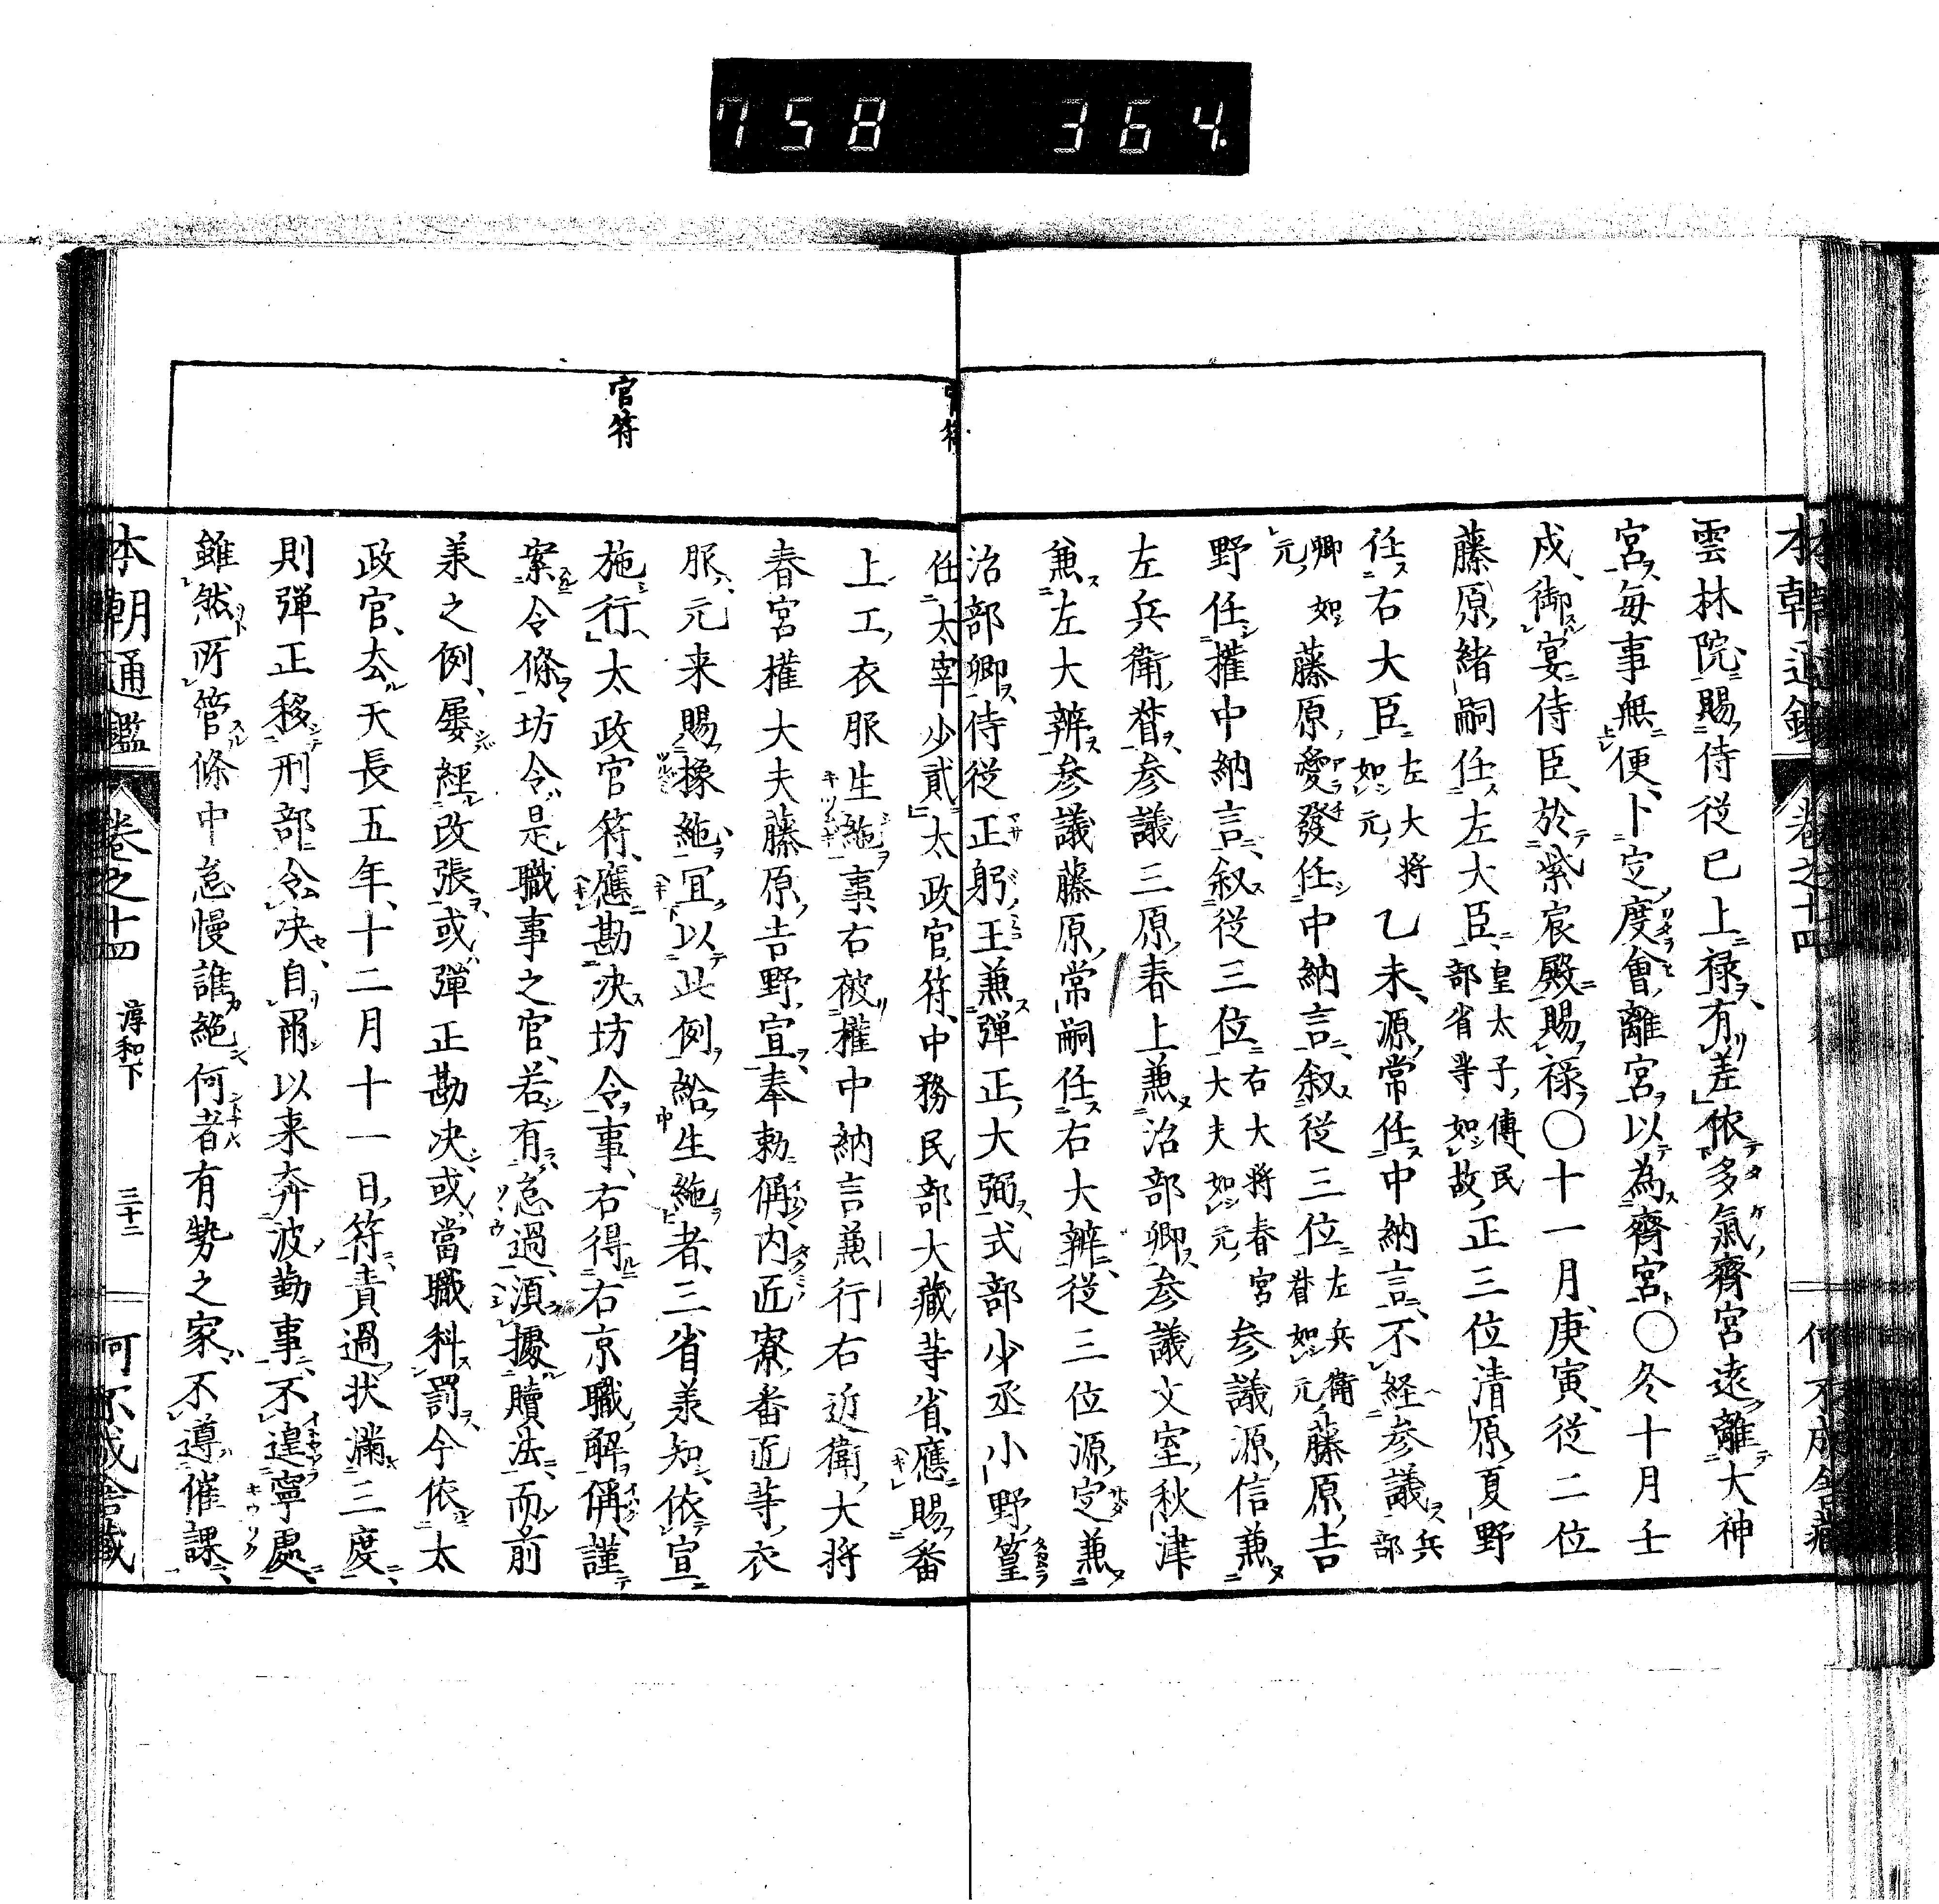 758 364.
本朝通鑑 卷之十四
雲林院賜侍從已上祿有差依多氣齊宮遠離大神
宮每事無便卜定度會離宮以為齊宮〇冬十月壬
戌御宴侍臣於紫宸殿賜祿〇十一月庚寅從二位
藤原緒嗣任左大臣皇太子傅民部省等如故正三位清原夏野
任右大臣左大將如元乙未源常任中納言不経参議兵部
卿如元藤原愛發任中納言叙從三位左兵衛督如元藤原吉
野任權中納言叙從三位右大將春宮大夫如元参議源信兼
左兵衛督参議三原春上兼治部卿参議文室秋津
兼左大辨参議藤原常嗣任右大辨從三位源定兼
治部卿侍從正躬王兼彈正大弼式部少丞小野篁
任太宰少貳太政官符中務民部大藏等省應賜番
上工衣服生絁事右被權中納言兼行右近衛大將
春宮權大夫藤原吉野宣奉勅偁内匠寮番匠等衣
服元来賜橡絁宜以此例給生絁者三省羕知依宣
官符
施行太政官符應勘决坊令事右得右京職解偁謹
案令條坊令是職事之官若有怠過須擬贖法而前
羕之例屡經改張或彈正勘决或當職科罰今依太
政官去天長五年十二月十一日符責過状滿三度
則彈正移刑部令决自爾以来奔波勤事不遑寧處
雖然所管條中怠慢誰絕何者有勢之家不遵催課
本朝通鑑 卷之十四 淳和下 三十二